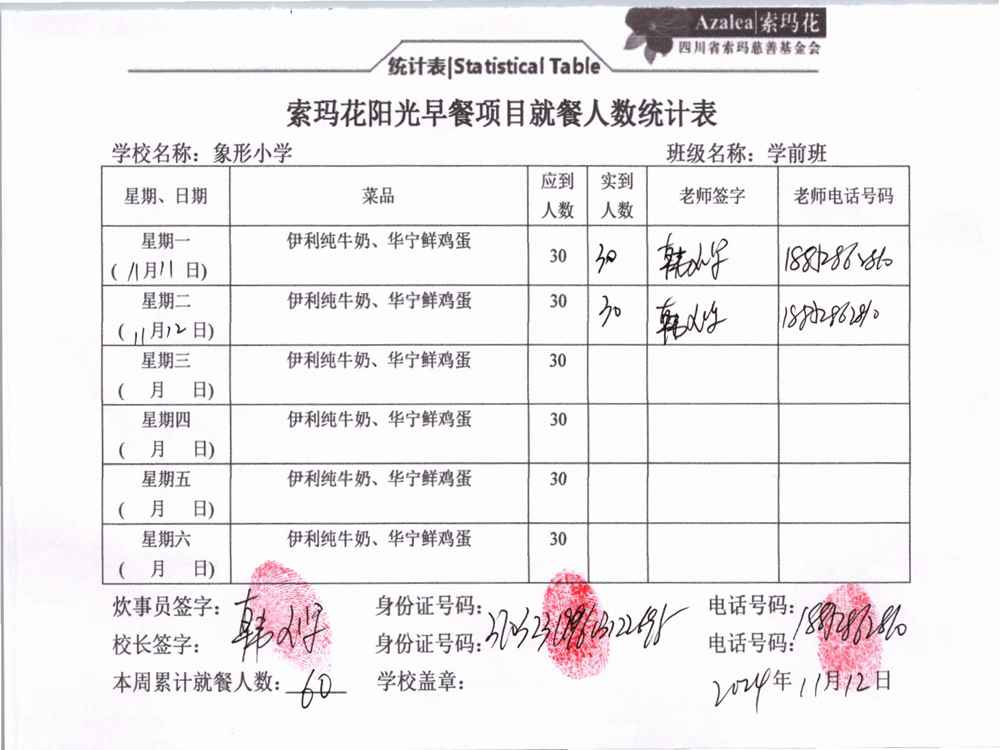 Azalea|索玛花
四川省索玛慈善基金会
统计表|Statistical Table
索玛花阳光早餐项目就餐人数统计表
学校名称：象形小学 班级名称：学前班
星期、日期 菜品 应到人数 实到人数 老师签字 老师电话号码
星期一 伊利纯牛奶、华宁鲜鸡蛋 30 30
(11月11日)
星期二 伊利纯牛奶、华宁鲜鸡蛋 30 30
(11月12日)
星期三 伊利纯牛奶、华宁鲜鸡蛋 30
( 月 日)
星期四 伊利纯牛奶、华宁鲜鸡蛋 30
( 月 日)
星期五 伊利纯牛奶、华宁鲜鸡蛋 30
( 月 日)
星期六 伊利纯牛奶、华宁鲜鸡蛋 30
( 月 日)
炊事员签字： 身份证号码： 电话号码：
校长签字： 身份证号码： 电话号码：
本周累计就餐人数：60 学校盖章： 2024年11月12日